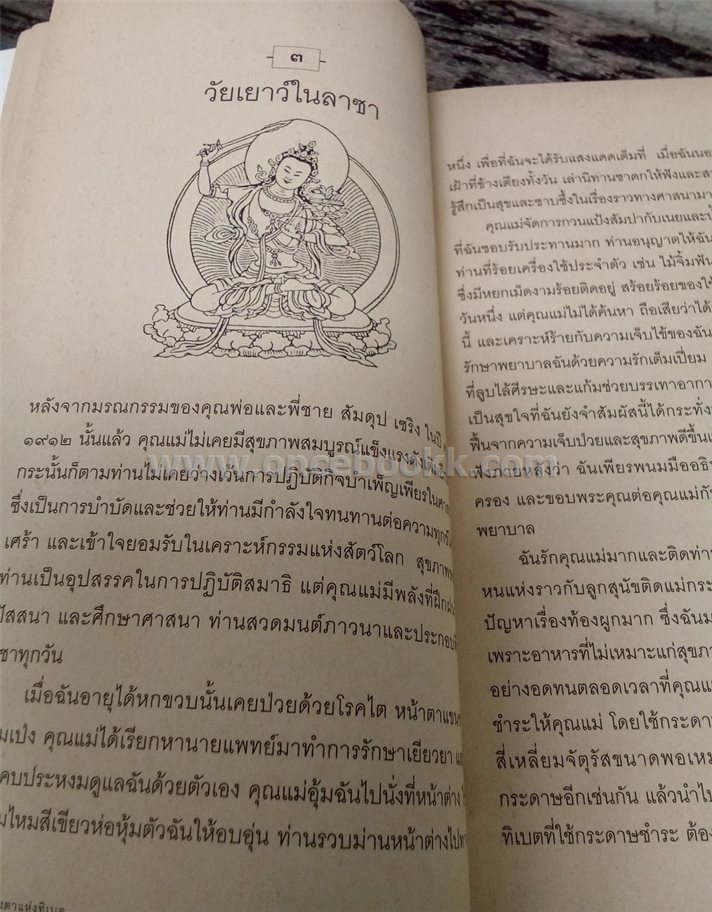 ๓
วัยเยาว์ในลาซา
หลังจากมรณกรรมของคุณพ่อและพี่ชาย สัมดุป เซริง ในปี
๑๙๑๒ นั้นแล้ว คุณแม่ไม่เคยมีสุขภาพสมบูรณ์แข็งแรง
กระนั้นก็ตามท่านไม่เคยวางเว้นการปฏิบัติกิจบำเพ็ญเพียรใน
ซึ่งเป็นการบำบัดและช่วยให้ท่านมีกำลังใจทนทานต่อความทุกข์
เศร้า และเข้าใจยอมรับในเคราะห์กรรมแห่งสัตว์โลก สุขภาพ
ท่านเป็นอุปสรรคในการปฏิบัติสมาธิ แต่คุณแม่มีพลังที่ฝึก
ปัสสนา และศึกษาศาสนา ท่านสวดมนต์ภาวนาและประกอบ
ชาทุกวัน
เมื่อฉันอายุได้หกขวบนั้นเคยป่วยด้วยโรคไต หน้าตาแขน
มเป่ง คุณแม่ได้เรียกหานายแพทย์มาทำการรักษาเยียวยา
คบประหงมดูแลฉันด้วยตัวเอง คุณแม่อุ้มฉันไปนั่งที่หน้าต่าง
มไหมสีเขียวห่อหุ้มตัวฉันให้อบอุ่น ท่านรวบม่านหน้าต่างไป
ดาแห่งทิเบต
หนึ่ง เพื่อที่ฉันจะได้รับแสงแดดเต็มที่ เมื่อฉันนอ
เฝ้าที่ข้างเตียงทั้งวัน เล่านิทานชาดกให้ฟังและส
รู้สึกเป็นสุขและซาบซึ้งในเรื่องราวทางศาสนามา
คุณแม่จัดการกวนแป้งสัมปากับเนยและน
ที่ฉันชอบรับประทานมาก ท่านอนุญาตให้ฉัน
ท่านที่ร้อยเครื่องใช้ประจำตัว เช่น ไม้จิ้มฟัน
ซึ่งมีหยกเม็ดงามร้อยติดอยู่ สร้อยร้อยของใช้
วันหนึ่ง แต่คุณแม่ไม่ได้ค้นหา ถือเสียว่าได้
นี้ และเคราะห์ร้ายกับความเจ็บไข้ของฉัน
รักษาพยาบาลฉันด้วยความรักเต็มเปี่ยม
ที่ลูบไล้ศีรษะและแก้มช่วยบรรเทาอากา
เป็นสุขใจที่ฉันยังจำสัมผัสนี้ได้กระทั่ง
ฟื้นจากความเจ็บป่วยและสุขภาพดีขึ้น
ฟังภายหลังว่า ฉันเพียรพนมมืออธิ
ครอง และขอบพระคุณต่อคุณแม่กั
พยาบาล
ฉันรักคุณแม่มากและติดท่า
หนแห่งราวกับลูกสุนัขติดแม่กระ
ปัญหาเรื่องท้องผูกมาก ซึ่งฉันม
เพราะอาหารที่ไม่เหมาะแก่สุขภา
อย่างอดทนตลอดเวลาที่คุณแ
ชำระให้คุณแม่ โดยใช้กระดา
สี่เหลี่ยมจัตุรัสขนาดพอเหม
กระดาษอีกเช่นกัน แล้วนำไป
ทิเบตที่ใช้กระดาษชำระ ต้อง
www.oncebookk.com